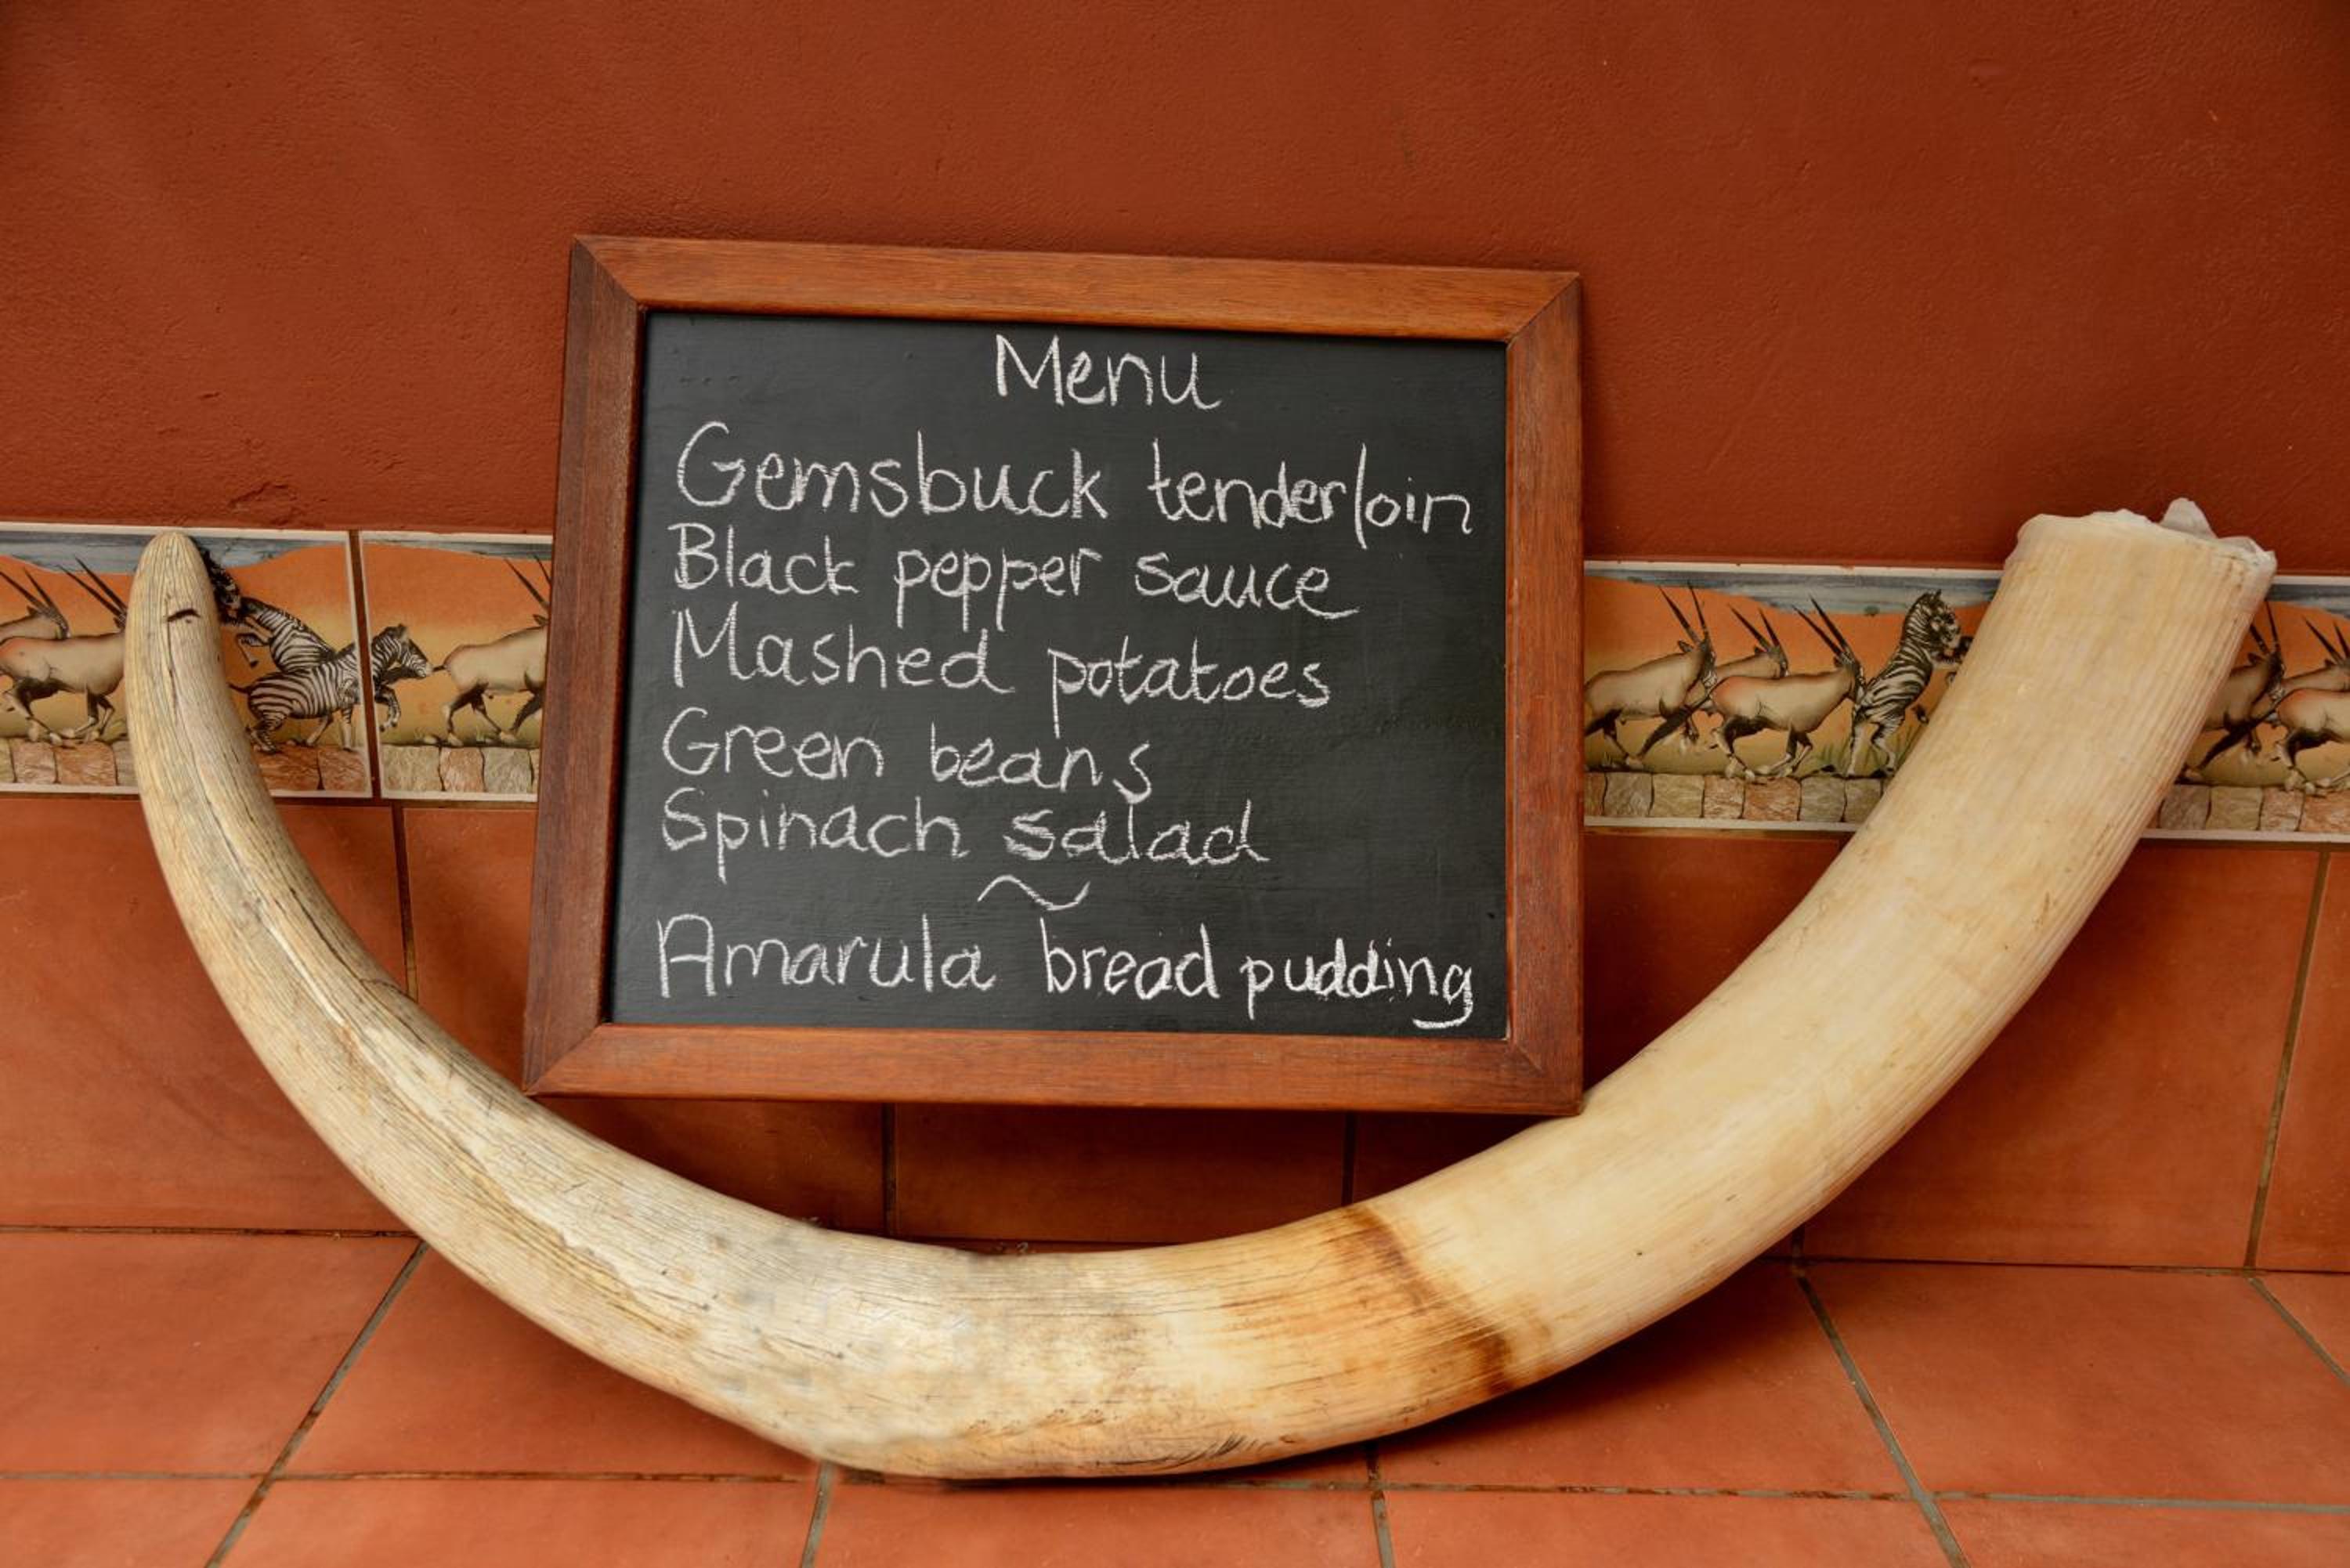 Menu
Gemsbuck tenderloin
Black pepper sauce
Mashed potatoes
Green beans
Spinach salad
~
Amarula bread pudding